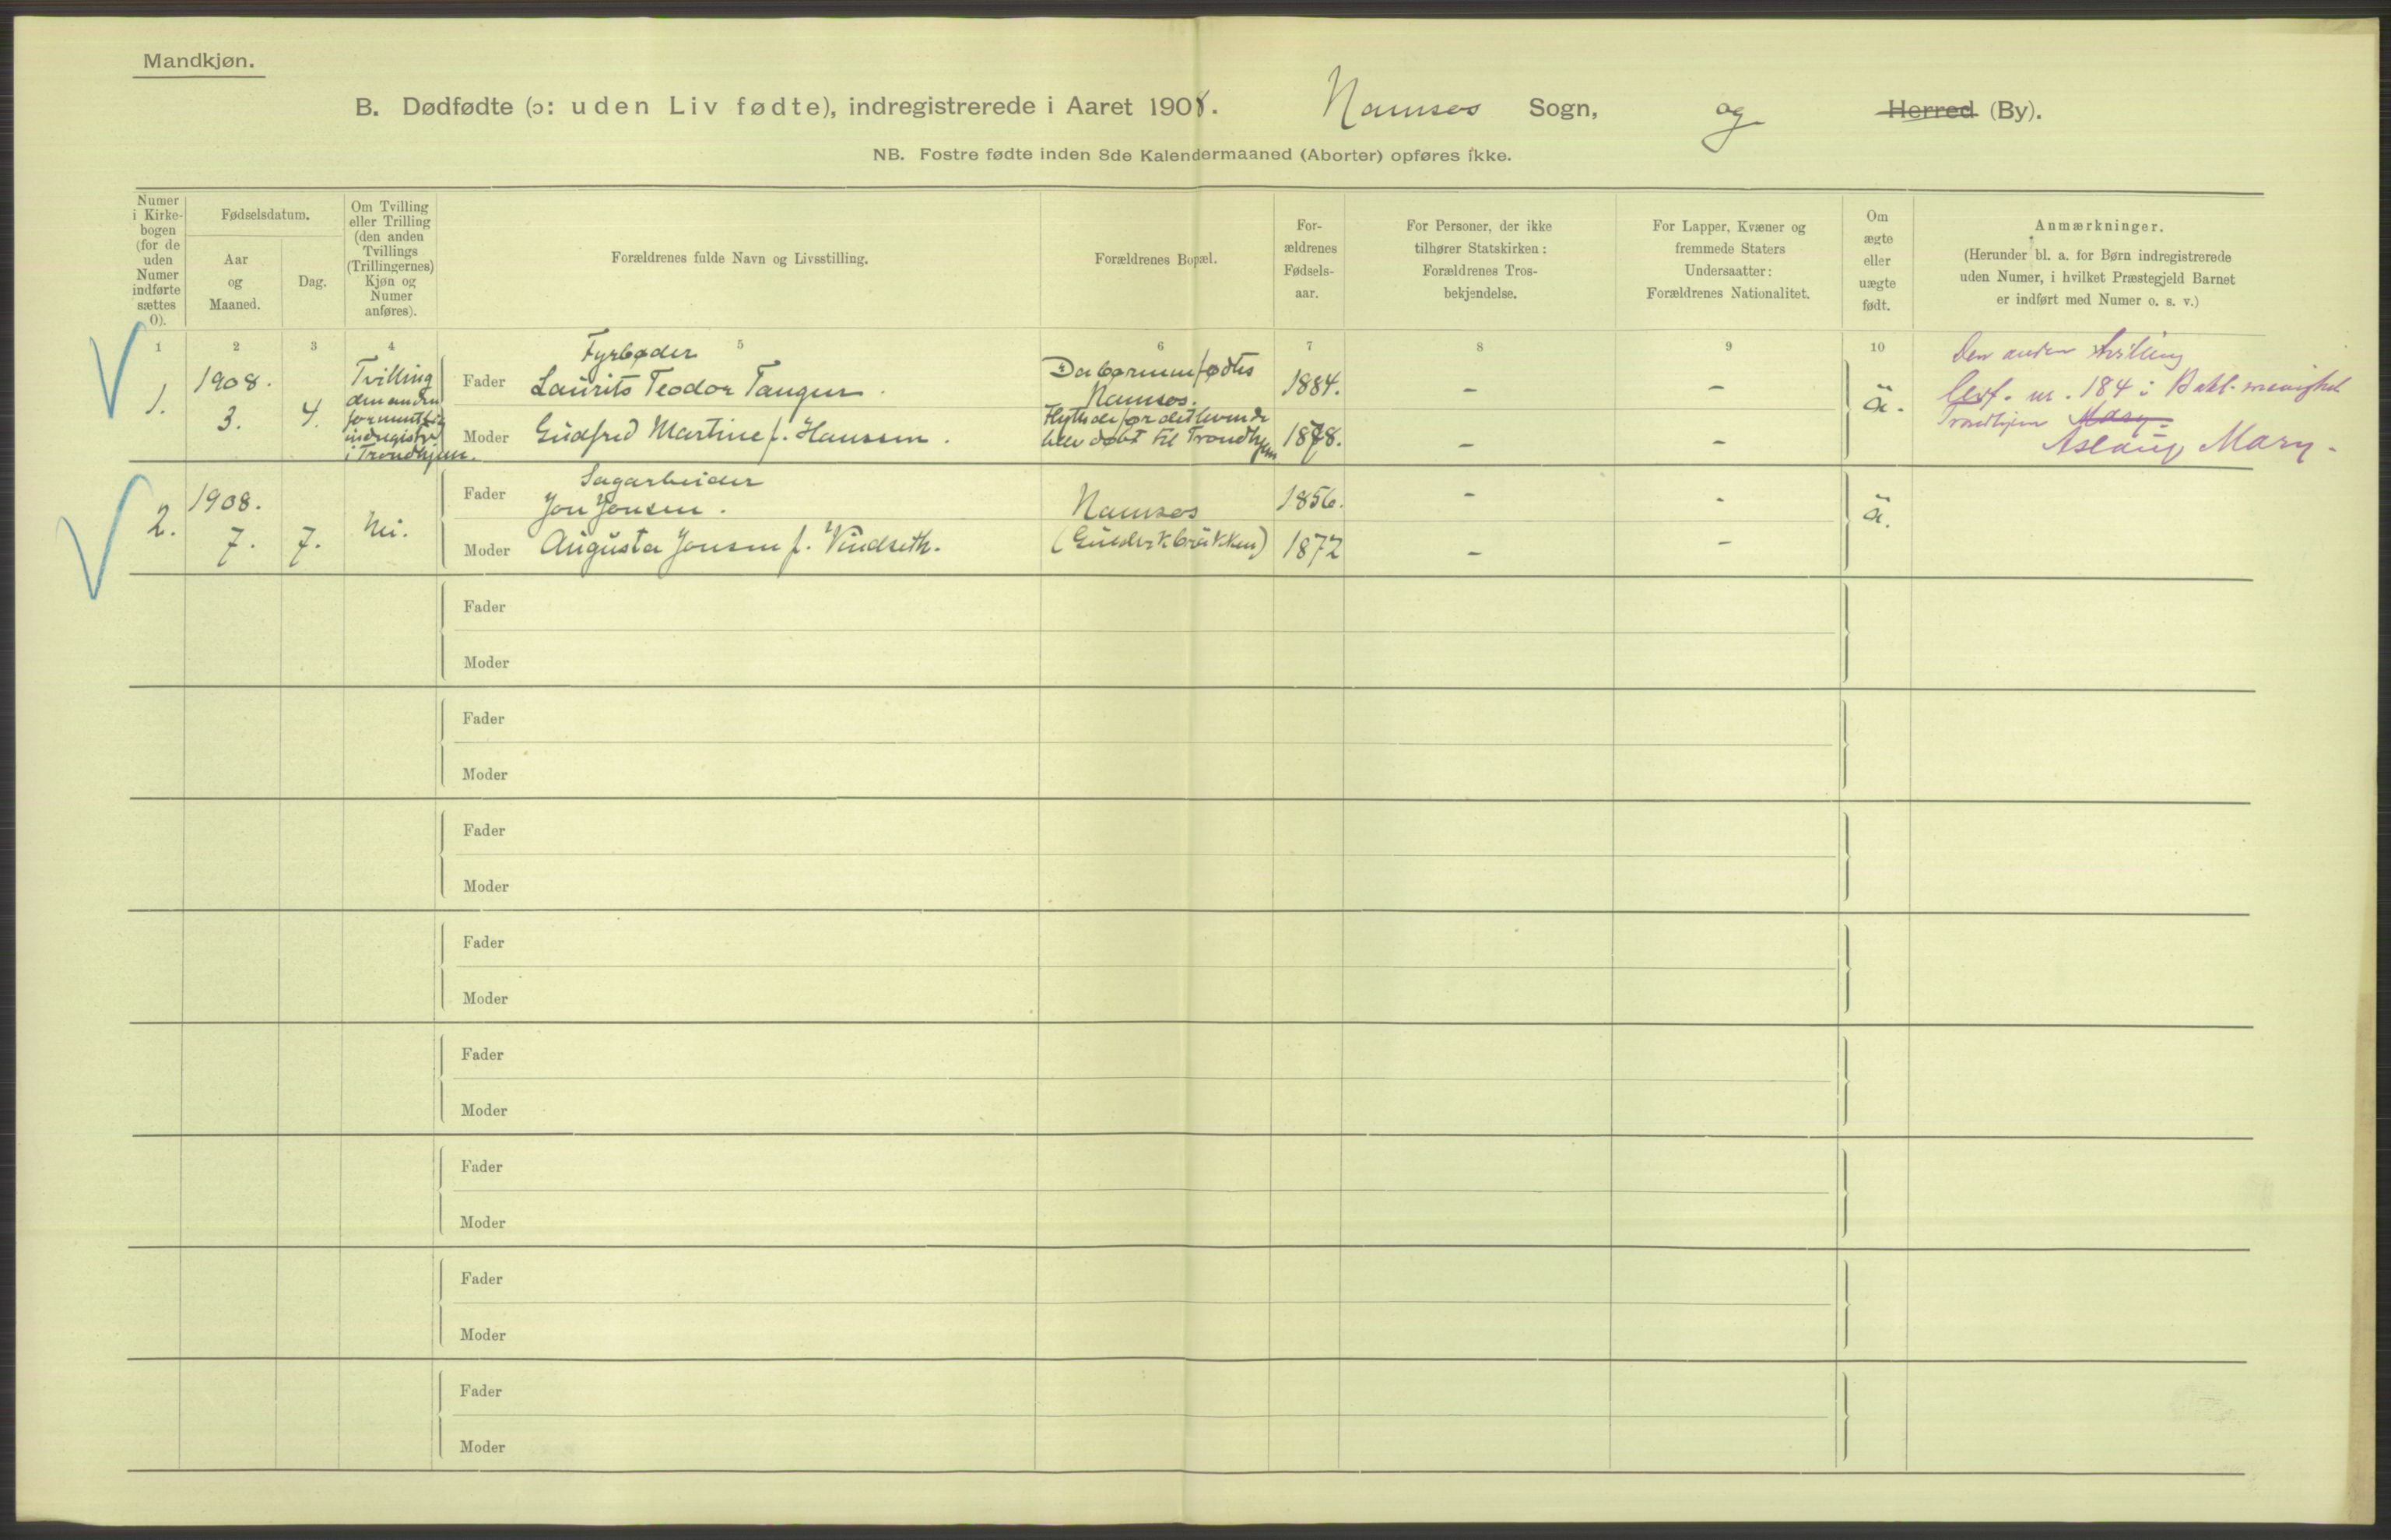 Mandkjøn.
B. Dødfødte (ɔ: uden Liv fødte), indregistrerede i Aaret 1908. Namsos Sogn, og Herred (By).
NB. Fostre fødte inden 8de Kalendermaaned (Aborter) opføres ikke.
Numer
i Kirke-
bogen
(for de
uden
Numer
indførte
sættes
0).
Fødselsdatum.
Aar
og
Maaned.
Dag.
Om Tvilling
eller Trilling
(den anden
Tvillings
(Trillingernes)
Kjøn og
Numer
anføres).
Forældrenes fulde Navn og Livsstilling.
Forældrenes Bopæl.
For-
ældrenes
Fødsels-
aar.
For Personer, der ikke
tilhører Statskirken:
Forældrenes Tros-
bekjendelse.
For Lapper, Kvæner og
fremmede Staters
Undersaatter:
Forældrenes Nationalitet.
Om
ægte
eller
uægte
født.
Anmærkninger.
(Herunder bl. a. for Børn indregistrerede
uden Numer, i hvilket Præstegjeld Barnet
er indført med Numer o. s. v.)
1 2 3 4 5 6 7 8 9 10
1.
1908.
3.
4.
Tvilling
den anden
formentlig
indregistr.
i Trondhjem.
Fyrbøder
Fader Laurits Teodor Tangen.
Moder Gudfred Martine f. Hanssen.
Da barnene fødtes
Namsos.
Flyttede før det levende
blev døbt til Trondhjem
1884. - -
1878. - -
æ.
Den anden tvilling
184 i Bakl. menighed
Trondhjem Mary.
Aslaug Mary.
2.
1908.
7.
7.
Nei.
Sagarbeider
Fader Jon Jonsen.
Moder Augusta Jonsen f. Vindseth.
Namsos
1856. - -
1872 - -
æ.
Fader
Moder
Fader
Moder
Fader
Moder
Fader
Moder
Fader
Moder
Fader
Moder
Fader
Moder
Fader
Moder